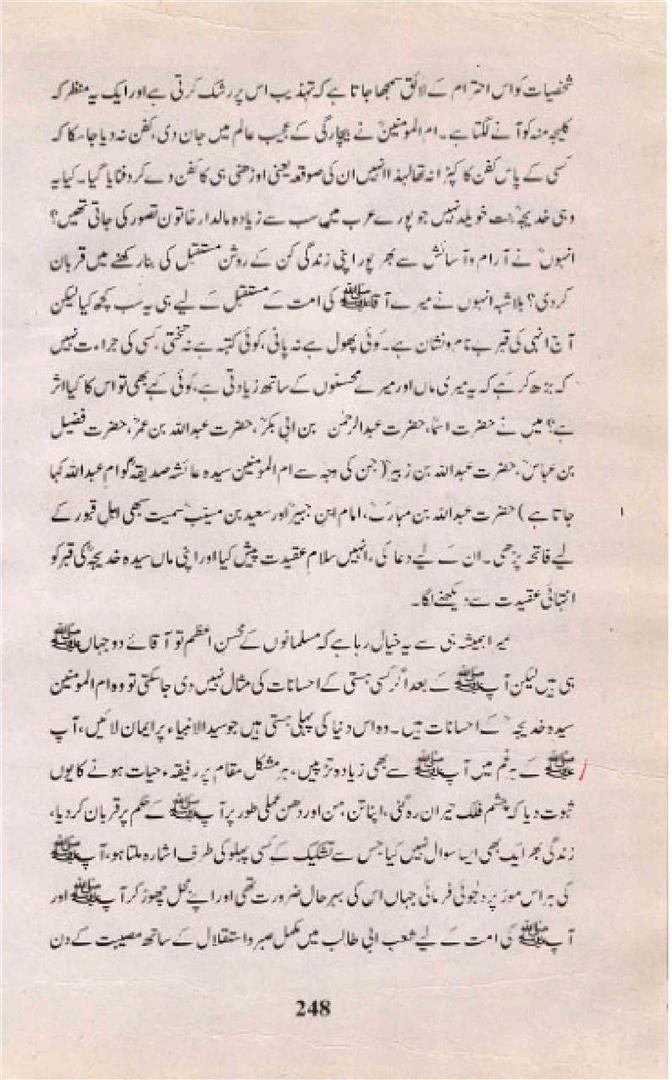 شخصیات کو اس احترام کے لائق سمجھا جاتا ہے کہ تہذیب اس پر رشک کرتی ہے اور ایک یہ منظر کہ
کلیجہ منہ کو آنے لگتا ہے۔ ام المومنینؓ نے بیچارگی کے عجیب عالم میں جان دی، کفن نہ دیا جا سکا کہ
کسی کے پاس کفن کا کپڑا نہ تھا لہذا انہیں ان کی صوقعہ یعنی اوڑھنی ہی کا کفن دے کر دفنایا گیا۔ کیا یہ
وہی خدیجہؓ بنت خویلد نہیں جو پورے عرب میں سب سے زیادہ مالدار خاتون تصور کی جاتی تھیں؟
انہوںؓ نے آرام و آسائش سے بھر پور اپنی زندگی کن کے روشن مستقبل کی بنا رکھنے میں قربان
کردی؟ بلاشبہ انہوں نے میرے آقا ﷺ کی امت کے مستقبل کے لیے ہی یہ سب کچھ کیا لیکن
آج انہی کی قبر بے نام و نشان ہے۔ کوئی پھول ہے نہ پانی، کوئی کتبہ ہے نہ تختی، کسی کی جراءت نہیں
کہ بڑھ کر کہے کہ یہ میری ماں اور میرے محسنوں کے ساتھ زیادتی ہے، کوئی کہے بھی تو اس کا کیا اثر
ہے؟ میں نے حضرت اسماؓ، حضرت عبدالرحمٰن بن ابی بکرؓ، حضرت عبداللہ بن عمرؓ، حضرت فضیل
بن عباسؓ، حضرت عبداللہ بن زبیرؓ (جن کی وجہ سے ام المومنین سیدہ عائشہ صدیقہؓ کو ام عبداللہ کہا
جاتا ہے) حضرت عبداللہ بن مبارکؒ، امام ابن جبیرؒ اور سعید بن مسیبؒ سمیت سبھی اہل قبور کے
لیے فاتحہ پڑھی۔ ان کے لیے دعا کی، انہیں سلام عقیدت پیش کیا اور اپنی ماں سیدہ خدیجہؓ کی قبر کو
انتہائی عقیدت سے دیکھنے لگا۔
میرا ہمیشہ ہی سے یہ خیال رہا ہے کہ مسلمانوں کے محسن اعظم تو آقائے دو جہاں ﷺ
ہی ہیں لیکن آپ ﷺ کے بعد اگر کسی ہستی کے احسانات کی مثال نہیں دی جا سکتی تو وہ ام المومنین
سیدہ خدیجہؓ کے احسانات ہیں۔ وہ اس دنیا کی پہلی ہستی ہیں جو سید الانبیاء پر ایمان لائیں، آپ
ﷺ کے ہر غم میں آپ ﷺ سے بھی زیادہ تڑپیں، ہر مشکل مقام پر رفیقہء حیات ہونے کا یوں
ثبوت دیا کہ چشم فلک حیران رہ گئی، اپنا تن، من اور دھن عملی طور پر آپ ﷺ کے حکم پر قربان کردیا،
زندگی بھر ایک بھی ایسا سوال نہیں کیا جس سے تشکیک کے کسی پہلو کی طرف اشارہ ملتا ہو، آپ ﷺ
کی ہر اس موڑ پر دلجوئی فرمائی جہاں اس کی بہر حال ضرورت تھی اور اپنے محل چھوڑ کر آپ ﷺ اور
آپ ﷺ کی امت کے لیے شعب ابی طالب میں مکمل صبر و استقلال کے ساتھ مصیبت کے دن
248